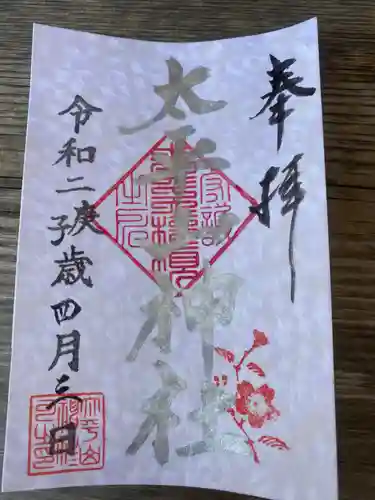 奉拝
太平山神社
令和二庚子歳四月三日